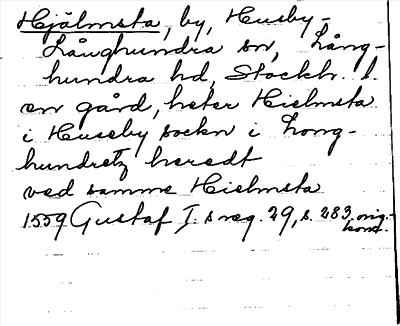 Hjälmsta, by, Husby-
Långhundra sn, Lång-
hundra hd, Stockh. l.
en gård, heter Hielmsta
i Huseby sockn i Long-
hundretz heredt
ved samme Hielmsta
1559 Gustaf I. s reg. 29, s. 283, orig.-
konc.